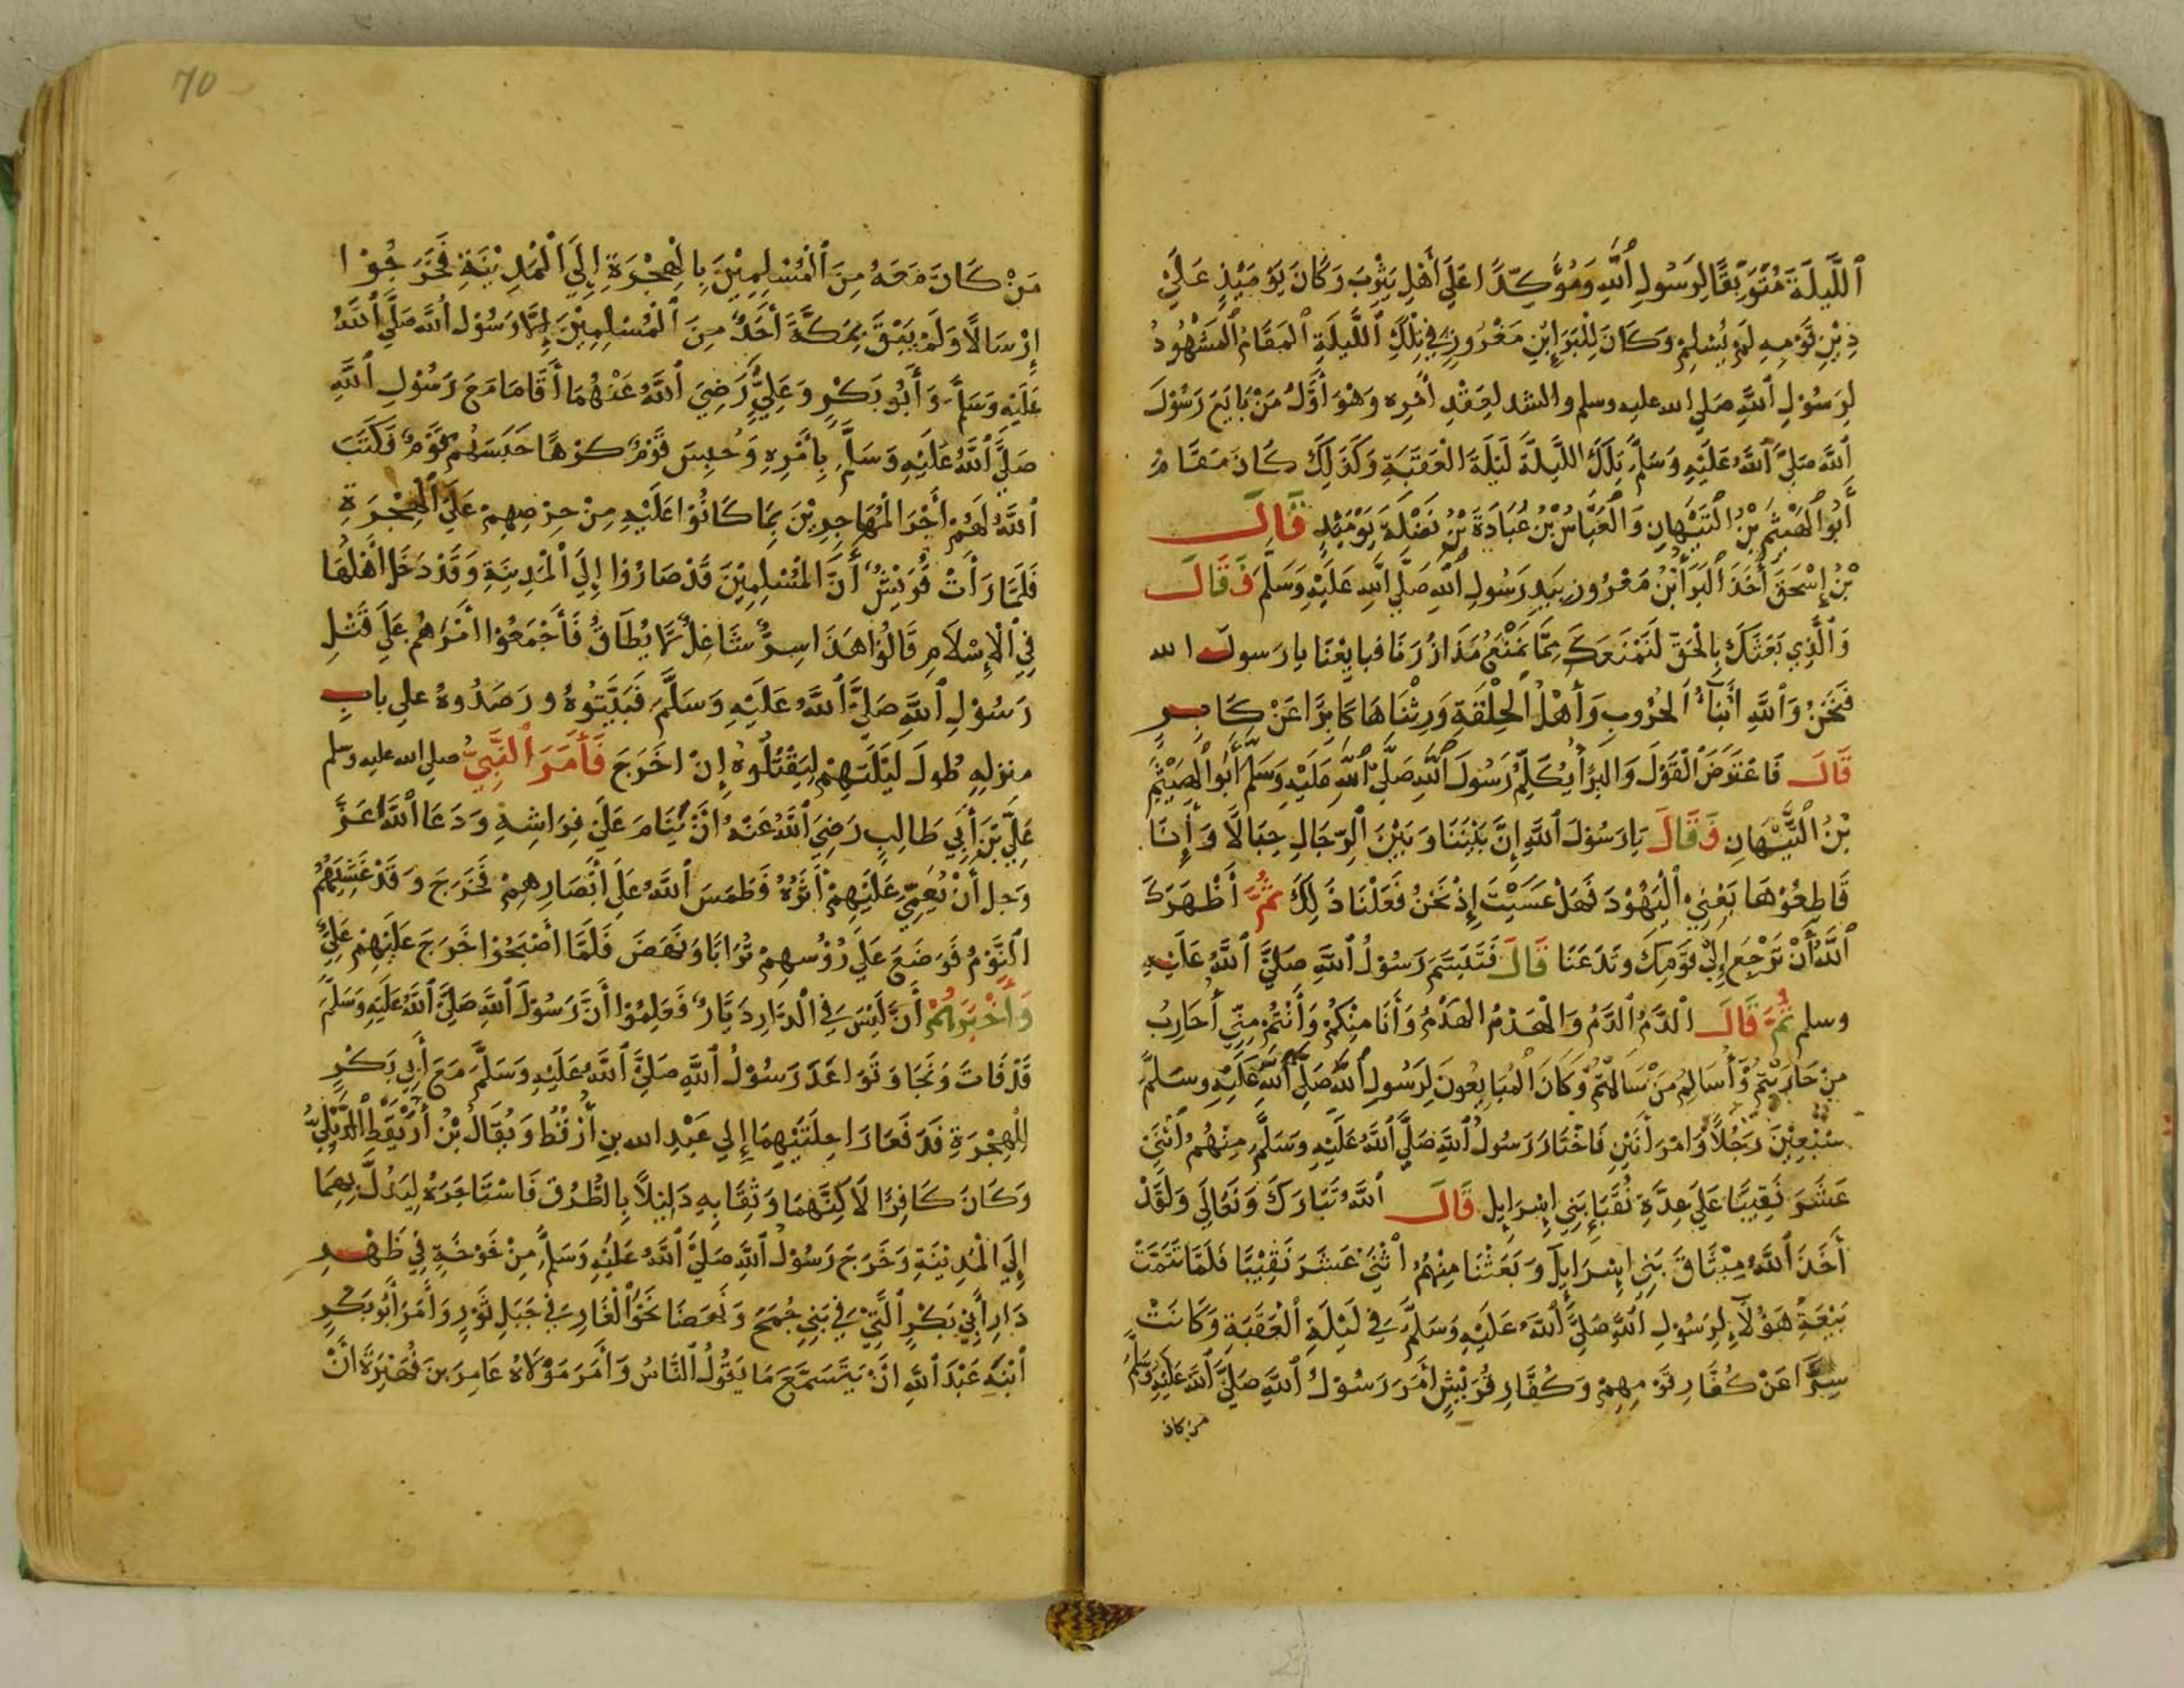 ٱللَّيْلَةَ مُتَوَثِّقًا لِرَسُولِ ٱللَّهِ وَمُؤَكِّدًا عَلَي أَهْلِ يَثْرِبَ وَكَانَ يَوْمَئِذٍ عَلَيْ
دِيْنِ قَوْمِهِ لَمْ يُسْلِمْ وَكَانَ لِلْبَرَاءِ بْنِ مَعْرُورٍ فِي تِلْكَ ٱللَّيْلَةِ ٱلمَقَامُ ٱلمَشْهُودُ
لِرَسُوْلِ ٱللَّهِ صَلي الله عليه وسلم والشد لِعَقْدِ أَمْرِه وَهْوَ أَوَّلُ مَنْ بَايَعَ رَسُوْلَ
ٱللَّهِ صَلَّيَ ٱللَّهُ عَلَيْهِ وَسَلَّمَ تِلْكَ اللَّيْلَةَ لَيْلَةَ الْعَقَبَةِ وَكَذَلِكَ كَانَ مَقَامُ
أَبُو ٱلهَيْثَمِ بْنُ ٱلتَّيْهَانِ وَٱلعَبَّاسُ بْنُ عُبَادَةَ بْنُ نَضْلَةَ يَوْمَئِذٍ قَالَ
بْنُ إِسْحَقَ أَخَذَ ٱلبَرَأُ بْنُ مَعْرُورٍ بِيَدِ رَسُولِ ٱللَّهِ صَلَّي ٱللَّهِ عَلَيْهِ وَسَلَّمَ فَقَالَ
وَٱلَّذِي بَعَثَكَ بِالْحَقِّ لَنَمْنَعَكَ مِمَّا نَمْنَعُ مَذَازُرَنَا فبايِعْنَا يارَسولَ الله
فَنَحْنُ وَٱللَّهِ أَبْنَآءُ ٱلحُرُوبِ وَأَهْلُ ٱلحِلْقَةِ وَرِثْنَاهَا كَابِرًا عَنْ كَابِرٍ
قَالَ فَاعْتَرَضَ ٱلْقَوْلَ وَالبَرَأُ يُكَلِّمُ رَسُولَ ٱللَّهِ صَلَّي ٱللَّهِ عَلَيْهِ وَسَلَّمَ أَبُو ٱلهَيْثَمِ
بْنُ ٱلتَّيْهَانِ فَقَالَ يَارَسُوْلَ ٱللَّهِ إِنَّ بَيْنَنَا وَبَيْنَ ٱلرِّجَالِ حِبَالًا وَأَنَا
قَاطِعُوْهَا يَعْنِي ٱلْيَهُوْدَ فَهَلْ عَسَيْتَ إِذْ نَحْنُ فَعَلْنَا ذَلِكَ ثُمَّ أَظْهَرَكَ
ٱللَّهُ أَنْ تَرْجِعَ إِلَيْ قَوْمِكَ وتَدَعَنَا قَالَ فَتَبَسَّمَ رَسُوْلُ ٱللَّهِ صَلَّيَ ٱللَّهُ عَلَيْهِ
وسلم ثُمَّ قَالَ ٱلْدَّمُ ٱلدَّمُ وَالْهَدْمُ الهَدْمُ وَأَنَا مِنْكُمْ وَأَنْتُمْ مِنِّي أُحَارِبُ
مِنْ حَارَبْتُمْ وَأُسَالِمُ مَنْ سَالَمْتُمْ وَكَانَ ٱلْمُبَايِعُونَ لِرَسُولِ ٱللَّهِ صَلَّي ٱللَّهُ عَلَيْهِ وسَلَّمَ
سَبْعِيْنَ رَجُلاً وَٱمْرَأَتَيْنِ فَاخْتَارَ رَسُولُ ٱللَّهِ صَلَّيَ ٱللَّهُ عَلَيْهِ وَسَلَّمَ مِنْهُمُ ٱثْنَيْ
عَشَرَ نَقِيبًا عَلَي عِدَّةِ نُقَبَاءِ بَنِي إِسْرَايِل قَالَ ٱللَّهُ تَبَارَكَ وَتَعَالَي وَلَقَدْ
أَخَذَ ٱللَّهُ مِيْثَاقَ بَنِي إِسْرَايِلَ وَبَعَثْنَا مِنْهُمُ ٱثْنَيْ عَشَرَ نَقِيْبًا فَلَمَّا تَمَّتْ
بَيْعَةُ هَؤُلآءِ لِرَسُوْلِ ٱللَّهِ صَلَّيَ ٱللَّهُ عَلَيْهِ وَسَلَّمَ فِي لَيْلَةِ ٱلْعَقَبَةِ وَكَانَتْ
سِرًّا عَنْ كُفَّارِ قَوْمِهِمْ وَكُفَّارِ قُرَيْشٍ أَمَرَ رَسُوْلُ ٱللَّهِ صَلَّيَ ٱللَّهُ عَلَيْهِ وَسَلَّمَ
من كان
70
مَنْ كَانَ مَعَهُ مِنَ ٱلْمُسْلِمِيْنَ بِالْهِجْرَةِ إِلَيَ الْمَدِيْنَةِ فَخَرَجُوْا
إِرْسَالًا وَلَمْ يَبْقَ بِمَكَّةَ أَحَدٌ مِنَ ٱلْمُسْلِمِيْنَ إِلَّا رَسُوْلُ ٱللَّهِ صَلَّيَ ٱللَّهُ
عَلَيْهِ وَسَلَّمَ وَأَبُو بَكْرٍ وَعَلِيٌّ رَضِيَ ٱللَّهُ عَنْهُمَا أَقَامَا مَعَ رَسُوْلِ ٱللَّهِ
صَلَّيَ ٱللَّهُ عَلَيْهِ وَسَلَّمَ بِأَمْرِهِ وَحُبِسَ قَوْمٌ كَرْهًا حَبَسَهُمْ قَوْمٌ فَكَتَبَ
ٱللَّهُ لَهُمْ أَجْرَ الْمُهَاجِرِيْنَ بِمَا كَانُوْا عَلَيْهِ مِنْ حِرْصِهِمْ عَلَيَ ٱلْهِجْرَةِ
فَلَمَّا رَأَتْ قُرَيْشٌ أَنَّ الْمُسْلِمِيْنَ قَدْ صَارُوْا إِلَيَ الْمَدِيْنَةِ وَقَدْ دَخَلَ أَهْلُهَا
فِي ٱلْإِسْلَامِ قَالُوْا هَذَا سِرٌّ شَاغِلٌ لَا يُطَاقُ فَأَجْمَعُوْا أَمْرَهُمْ عَلَي قَتْلِ
رَسُوْلِ ٱللَّهِ صَلَّيَ ٱللَّهُ عَلَيْهِ وَسَلَّمَ فَبَيَّتُوْهُ ورَصَدُوهُ علي بابِ
منزلِهِ طُولَ لَيْلَتِهِمْ لِيَقْتُلُوْهُ إِنْ خَرَجَ فَأَمَرَ ٱلنَّبِيُّ صلي الله عليه وسلم
عَلِيَّ بْنَ أَبِي طَالِبٍ رَضِيَ ٱللَّهُ عَنْهُ أَنْ يَّنَامَ عَلَيْ فِرَاشِهِ وَدَعَا ٱللَّهَ عَزَّ
وَجل أَنْ يُعَمِّيَ عَلَيْهِمْ أَثَرَهُ فَطَمَسَ ٱللَّهُ عَلَي أَبْصَارِهِمْ فَخَرَجَ وَقَدْ غَشِيَهُمُ
النَّوْمُ فَوَضَعَ عَلَي رُؤُسهِمْ تُرَابًا وَنَهَضَ فَلَمَّا أَصْبَحُوْا خَرَجَ عَلَيْهِمْ عَلِيٌّ
وَأَخْبَرَهُمْ أَنْ لَيْسَ فِي الْدَّارِ دَيَّارٌ فَعَلِمُوْا أَنَّ رَسُوْلَ ٱللَّهِ صَلَّيَ ٱللَّهُ عَلَيْهِ وَسَلَّمَ
قَدْ فَاتَ وَنَجَا وَتَوَاعَدَ رَسُوْلُ ٱللَّهِ صَلَّيَ ٱللَّهُ عَلَيْهِ وَسَلَّمَ مَعَ أَبِي بَكْرٍ
لِلْهِجْرَةِ فَدَفَعَا رَاحِلَتَيْهِمَا إِلي عَبْدِ الله بنِ أُرْقُطَ وَيُقَالُ بْنُ أُرَيْقِطِ ٱلدِّيْلِيُّ
وَكَانَ كَافِرًا لَاكِنَّهُمَا وَثِقَا بِهِ دَلِيْلاً بِالطُّرُقِ فَاسْتَاجَرَهُ لِيَدُلَّ بِهِمَا
إِلَيَ الْمَدِيْنَةِ وَخَرَجَ رَسُوْلُ ٱللَّهِ صَلَّيَ ٱللَّهُ عَلَيْهِ وَسَلَّمَ مِنْ خَوْخَةٍ فِي ظَهْرِ
دَارِ أَبِيْ بَكْرٍ ٱلَّتِيْ فِي بَنِي جُمَحَ وَنَهَضَا نَحْوَ ٱلْغَارِ فِي جَبَلِ ثَوْرٍ وَأَمَرَ أَبُو بَكْرٍ
ٱبْنَهُ عَبْدَ ٱللَّهِ أَنْ يَتَسَمَّعَ مَا يَقُوْلُ ٱلنَّاسُ وَأَمَرَ مَوْلَاهُ عَامِرَ بنَ فُهَيْرَةَ أَنْ